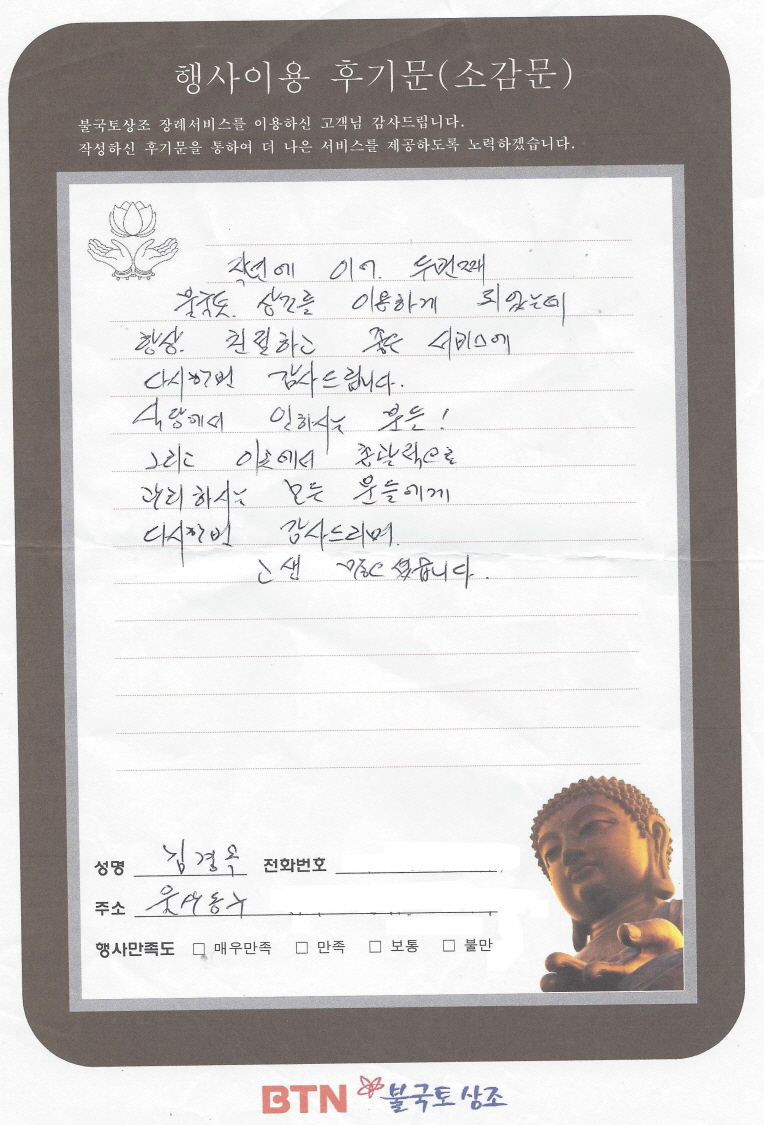 행사이용 후기문(소감문)
불국토상조 장례서비스를 이용하신 고객님 감사드립니다.
작성하신 후기문을 통하여 더 나은 서비스를 제공하도록 노력하겠습니다.
작년에 이어. 두번째
불국토. 상조를 이용하게 되었는데
항상. 친절하고 좋은 서비스에
다시한번 감사드립니다.
식당에서 일하시는 분들!
그리고 이곳에서 총괄적으로
관리하시는 모든 분들에게
다시한번 감사드리며.
고생 많으셨습니다.
성명 김경옥 전화번호
주소 울산동구
행사만족도 □ 매우만족 □ 만족 □ 보통 □ 불만
BTN 불국토상조